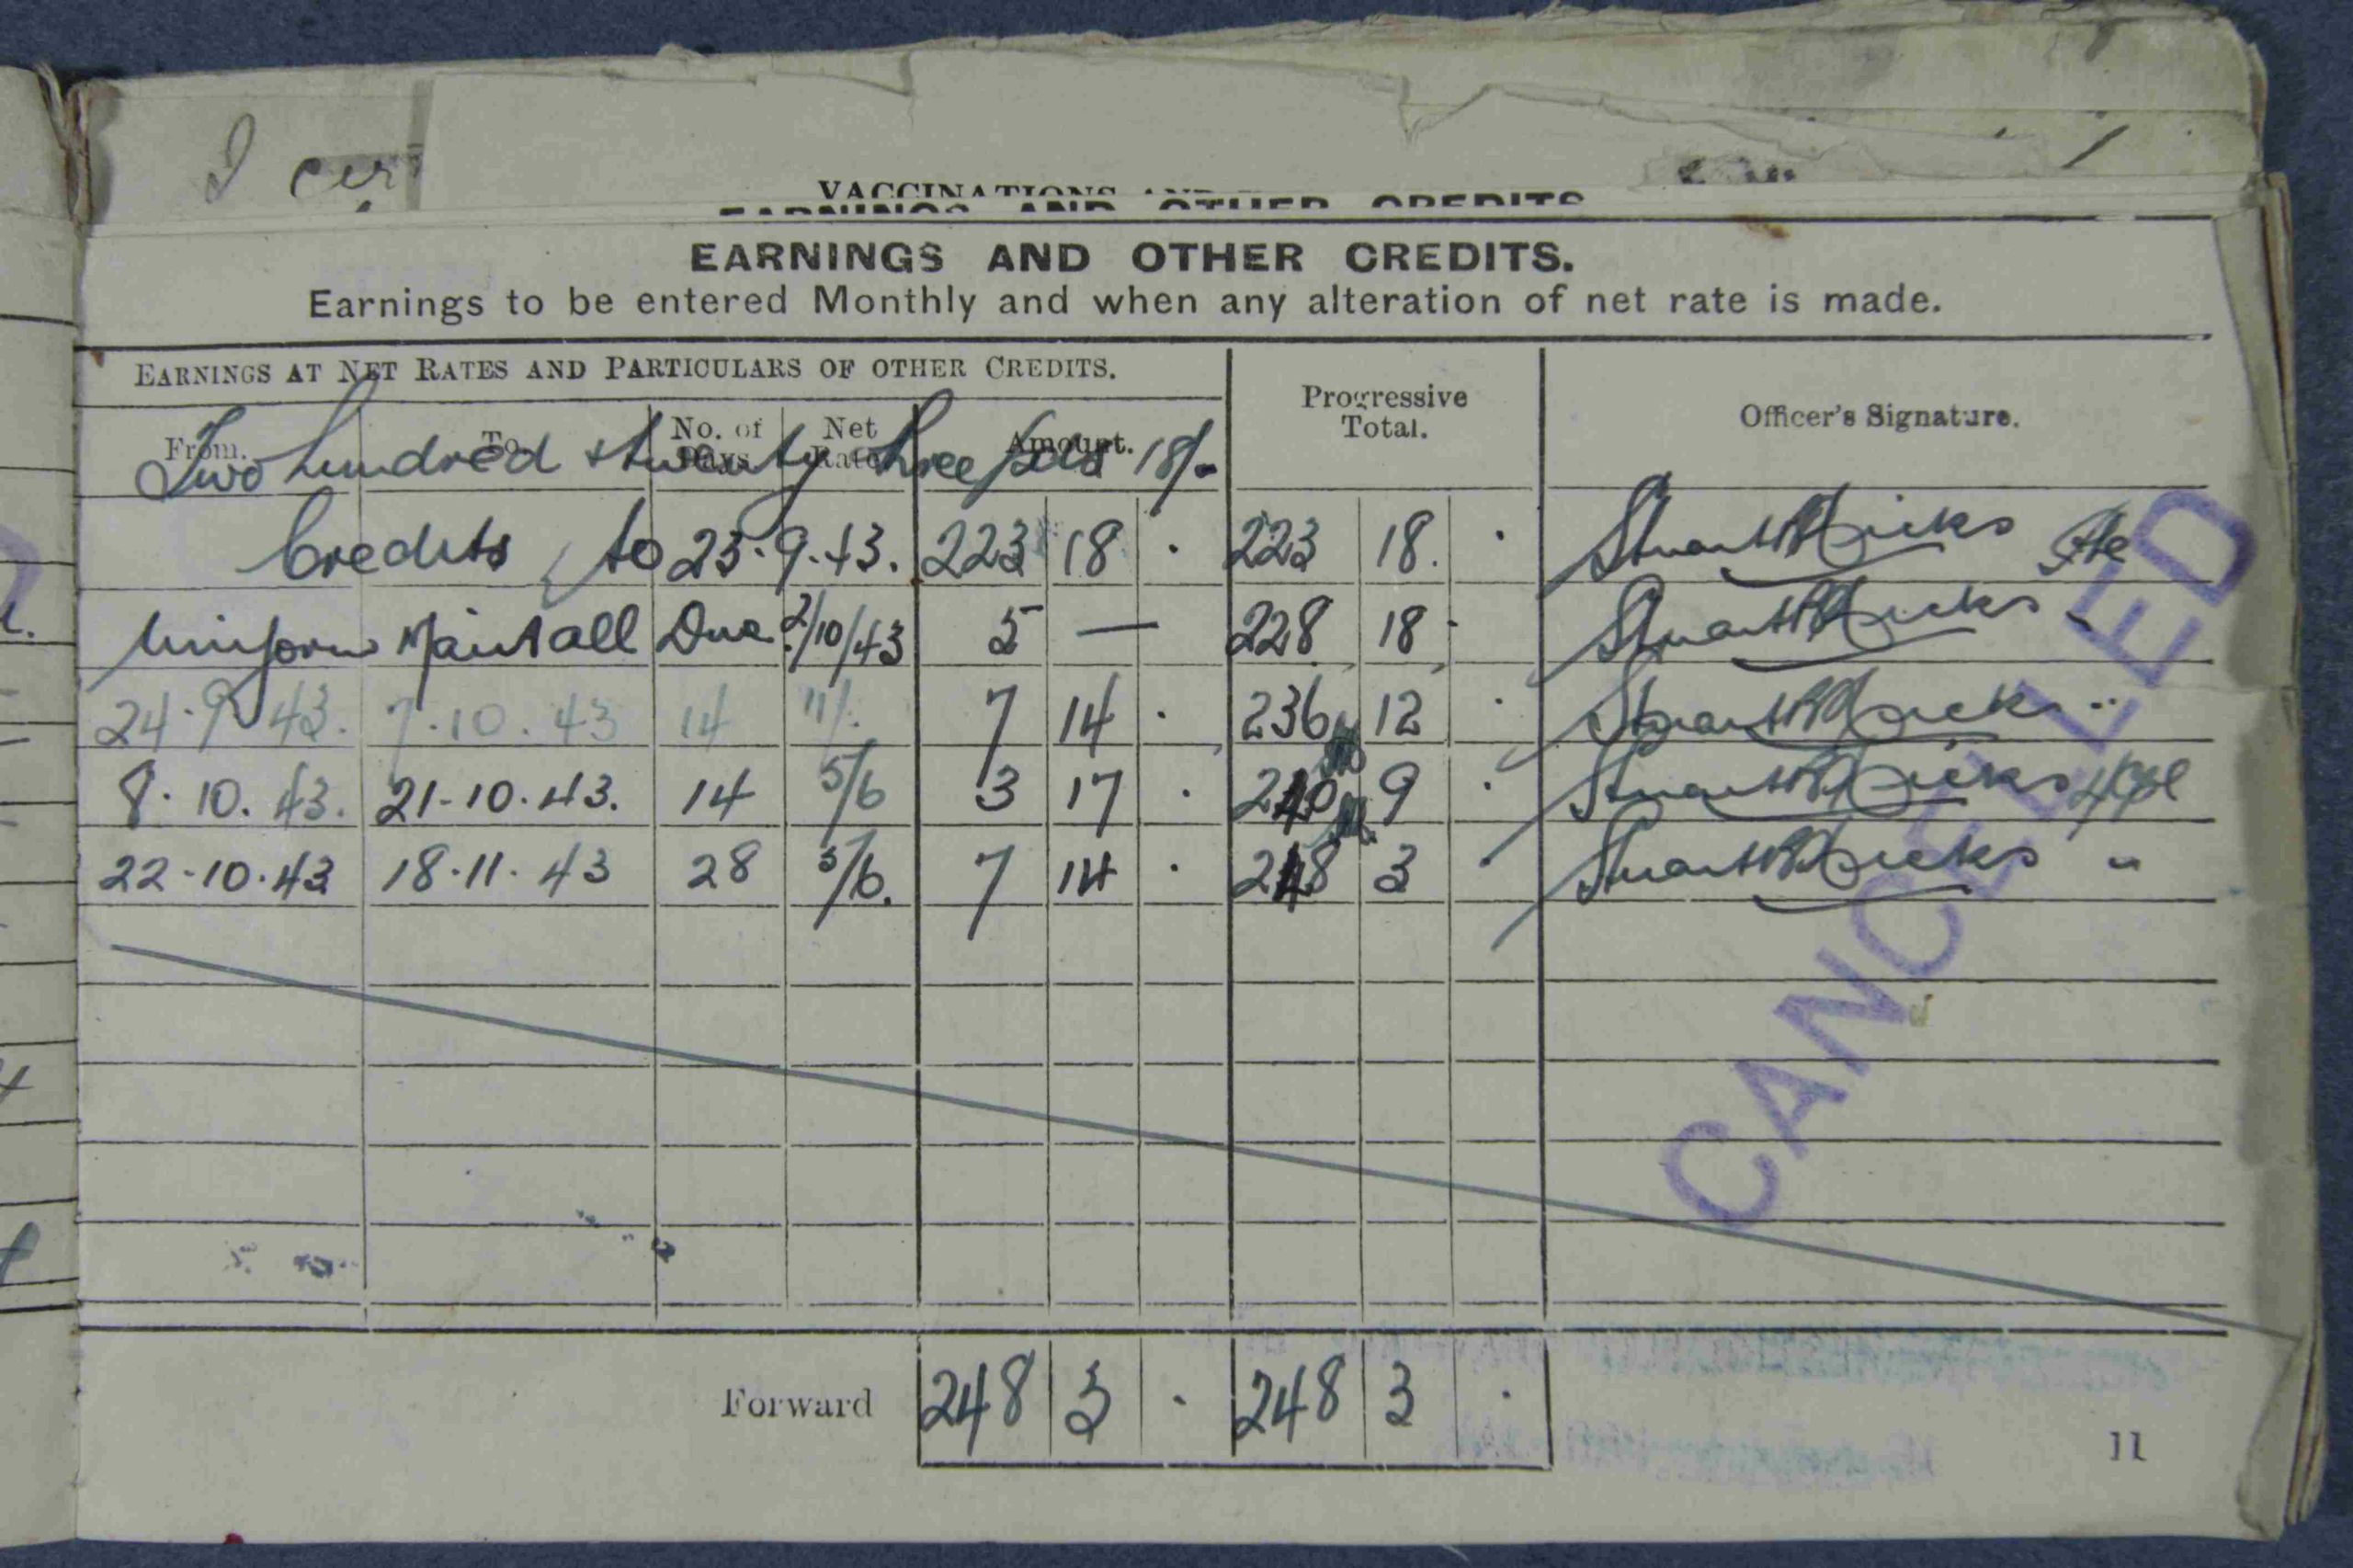 I cer
VACCINATIONS AND
EARNINGS AND OTHER CREDITS
EARNINGS AND OTHER CREDITS.
Earnings to be entered Monthly and when any alteration of net rate is made.
EARNINGS AT NET RATES AND PARTICULARS OF OTHER CREDITS. Progressive Total. Officer's Signature.
From. To. No. of Days Net Rate Amount.
Two hundred & twenty three pds 18/-
Credits to 23.9.43. 223 18 . 223 18. .
Uniform Maint all Due 2/10/43 5 — 228 18 -
24.9.43. 7.10.43 14 11/. 7 14 . 236 12 .
8.10.43. 21-10.43. 14 5/6 3 17 . 240 9 .
22-10.43 18.11.43 28 5/6. 7 14 . 248 3 .
CANCELLED
Forward 248 3 . 248 3 .
11